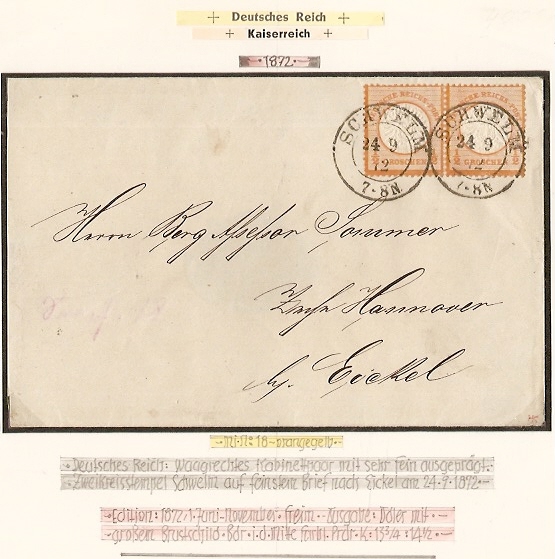 + Deutsches Reich +
+ Kaiserreich +
· 1872 ·
DEUTSCHE REICHS-POST DEUTSCHE REICHS-POST
SCHWELM SCHWELM
24 9 24 9
72 72
7-8N 7-8N
1/2 GROSCHEN 1/2 1/2 GROSCHEN 1/2
Herrn Berg Assessor Sommer
Zeche Hannover
bei Eickel
- Mi.Nr. 18 - orangegelb -
· Deutsches Reich: Waagrechtes Kabinettpaar mit sehr fein ausgeprägt. ·
· Zweikreisstempel Schwelm auf feinstem Brief nach Eickel am 24.9.1872 -
· Edition: 1872/1. Juni-November. Freim.-Ausgabe: Adler mit ·
großem Brustschild · Bdr. i.d. Mitte farbl. Präg. · K: 13 3/4 : 14 1/2 ·